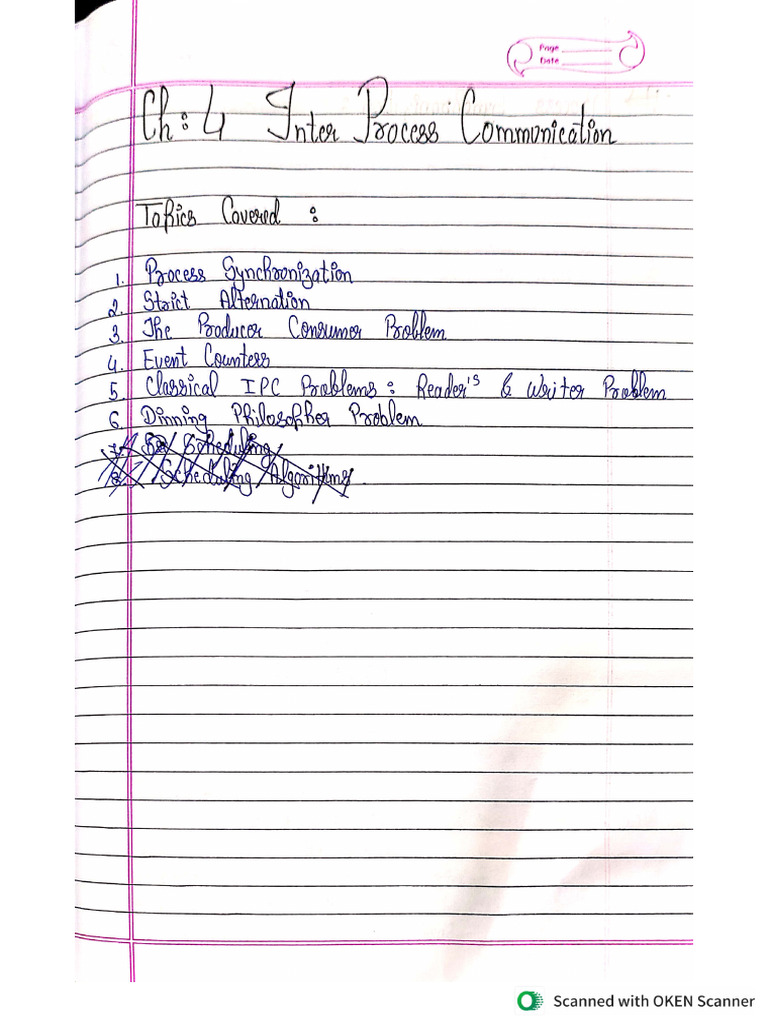 Page
Date
Ch: 4 Inter Process Communication
Topics Covered :
1. Process Synchronization
2. Strict Alternation
3. The Producer Consumer Problem
4. Event Counters
5 Classical IPC Problems: Reader's & Writer Problem
6. Dinning Philosopher Problem
7. Scheduling
8. Scheduling Algorithms.
Scanned with OKEN Scanner